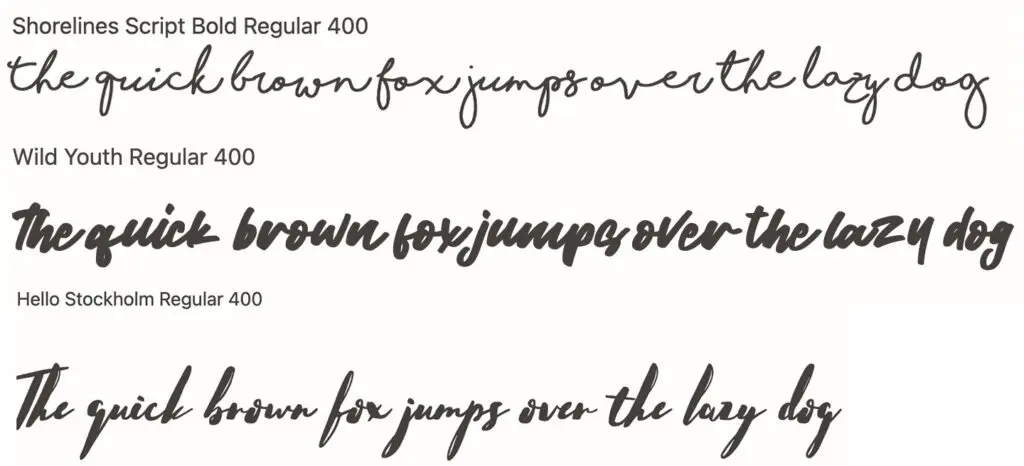 Shorelines Script Bold Regular 400
the quick brown fox jumps over the lazy dog
Wild Youth Regular 400
The quick brown fox jumps over the lazy dog
Hello Stockholm Regular 400
The quick brown fox jumps over the lazy dog